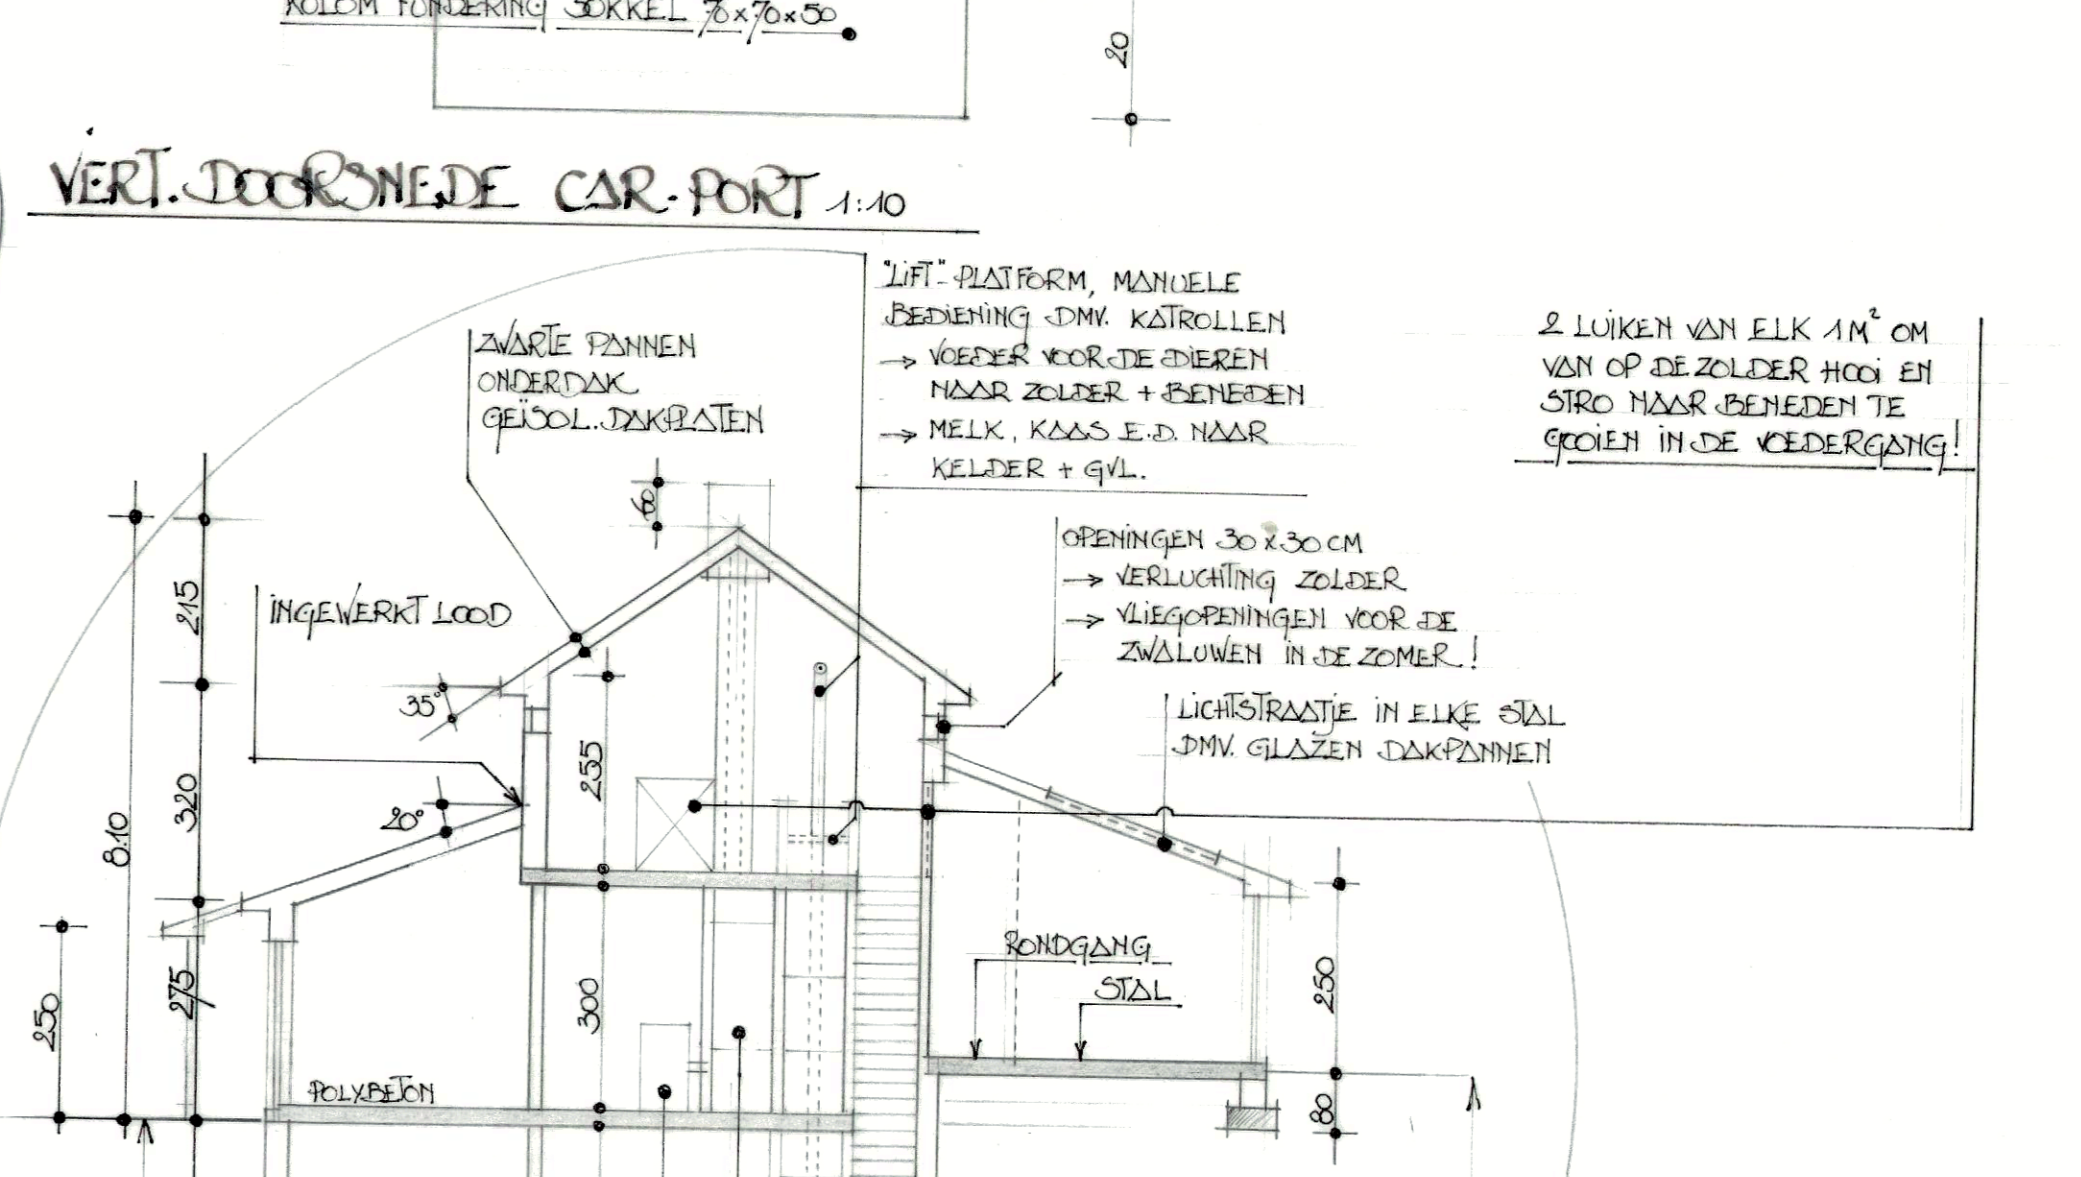 KOLOM FUNDERING SOKKEL 70x70x50
20
VERT. DOORSNEDE CAR-PORT 1:10
"LIFT"-PLATFORM, MANUELE
BEDIENING DMV. KATROLLEN
→ VOEDER VOOR DE DIEREN
NAAR ZOLDER + BENEDEN
→ MELK, KAAS E.D. NAAR
KELDER + GVL.
2 LUIKEN VAN ELK 1M² OM
VAN OP DE ZOLDER HOOI EN
STRO NAAR BENEDEN TE
GOOIEN IN DE VOEDERGANG!
ZWARTE PANNEN
ONDERDAK
GEÏSOL. DAKPLATEN
60
OPENINGEN 30x30CM
→ VERLUCHTING ZOLDER
→ VLIEGOPENINGEN VOOR DE
ZWALUWEN IN DE ZOMER!
INGEWERKT LOOD
215
35°
LICHTSTRAATJE IN ELKE STAL
DMV. GLAZEN DAKPANNEN
255
320
20°
8.10
RONDGANG
STAL
250
275
300
250
POLYBETON
80